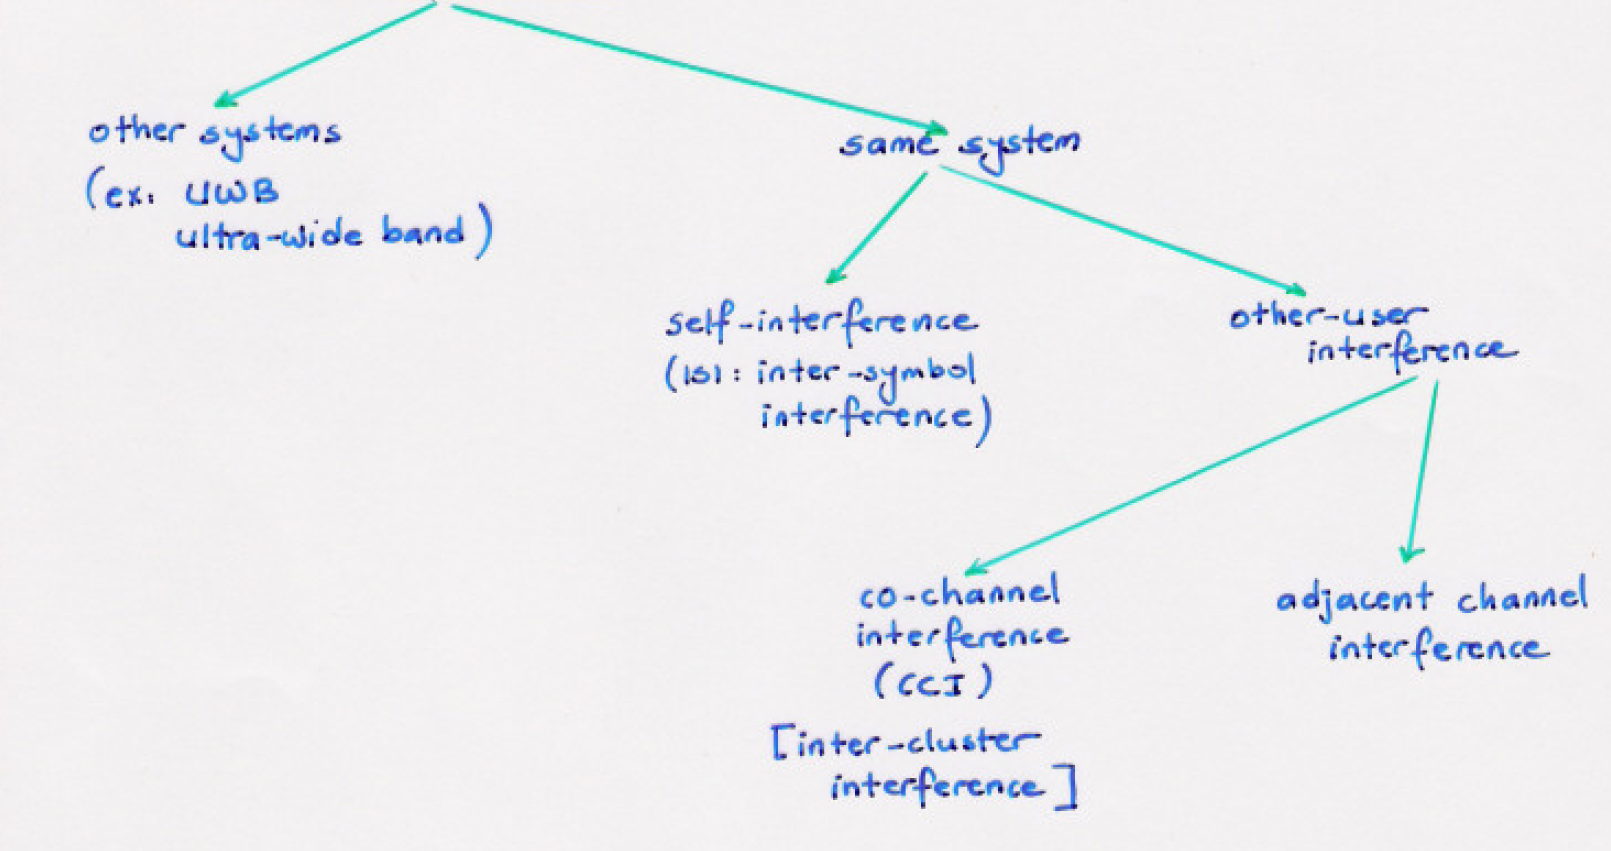 other systems
(ex: UWB
ultra-wide band)
same system
self-interference
(ISI: inter-symbol
interference)
other-user
interference
co-channel
interference
(CCI)
[inter-cluster
interference]
adjacent channel
interference